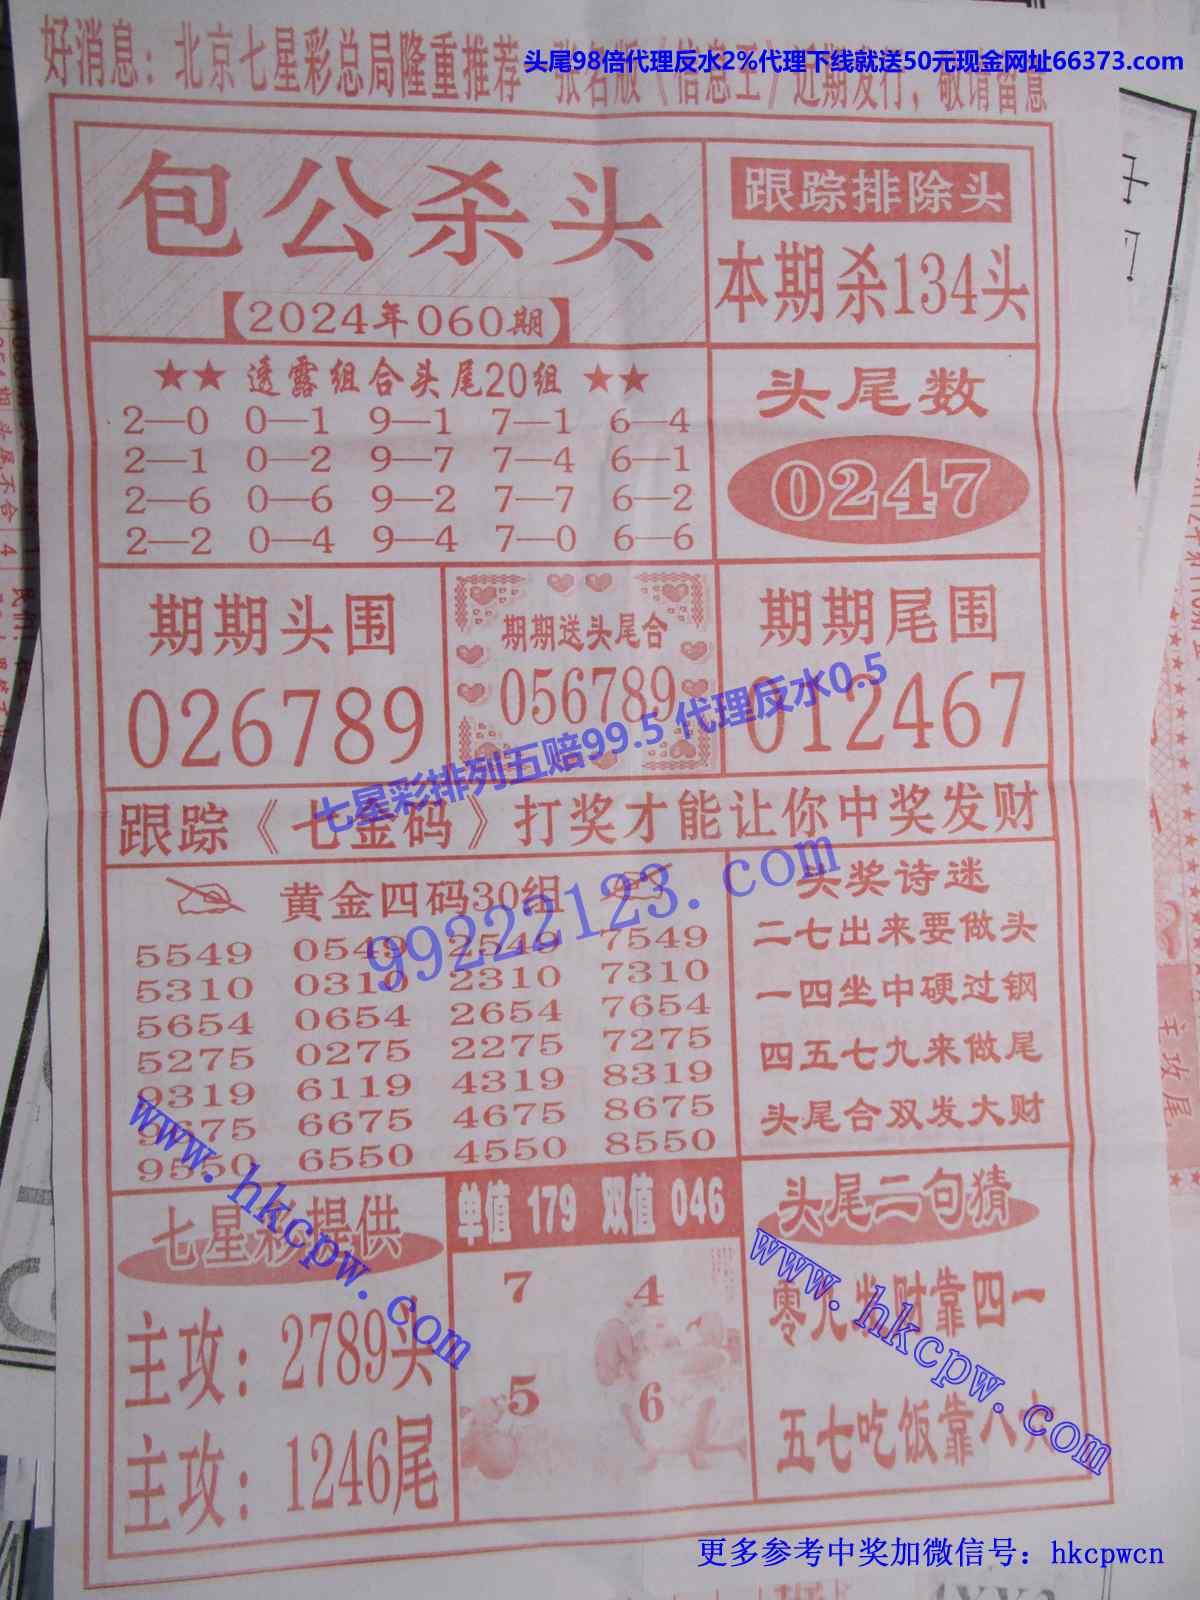 头尾98倍代理反水2%代理下线就送50元现金网址66373.com
好消息：北京七星彩总局隆重推荐 张名版《信息王》近期发行，敬请留意
包公杀头
【2024年060期】
跟踪排除头
本期杀134头
★★ 透露组合头尾20组 ★★
2—0 0—1 9—1 7—1 6—4
2—1 0—2 9—7 7—4 6—1
2—6 0—6 9—2 7—7 6—2
2—2 0—4 9—4 7—0 6—6
头尾数
0247
期期头围
026789
期期送头尾合
056789
期期尾围
012467
七星彩排列五赔99.5 代理反水0.5
跟踪《七金码》打奖才能让你中奖发财
99222123.com
黄金四码30组
5549 0549 2549 7549
5310 0310 2310 7310
5654 0654 2654 7654
5275 0275 2275 7275
9319 6119 4319 8319
9675 6675 4675 8675
9550 6550 4550 8550
头奖诗迷
二七出来要做头
一四坐中硬过钢
四五七九来做尾
头尾合双发大财
www.hkcpw.com
七星彩提供
主攻：2789头
主攻：1246尾
单值 179 双值 046
7 4
5 6
头尾二句猜
零九发财靠四一
五七吃饭靠八六
www.hkcpw.com
更多参考中奖加微信号：hkcpwcn
主攻尾